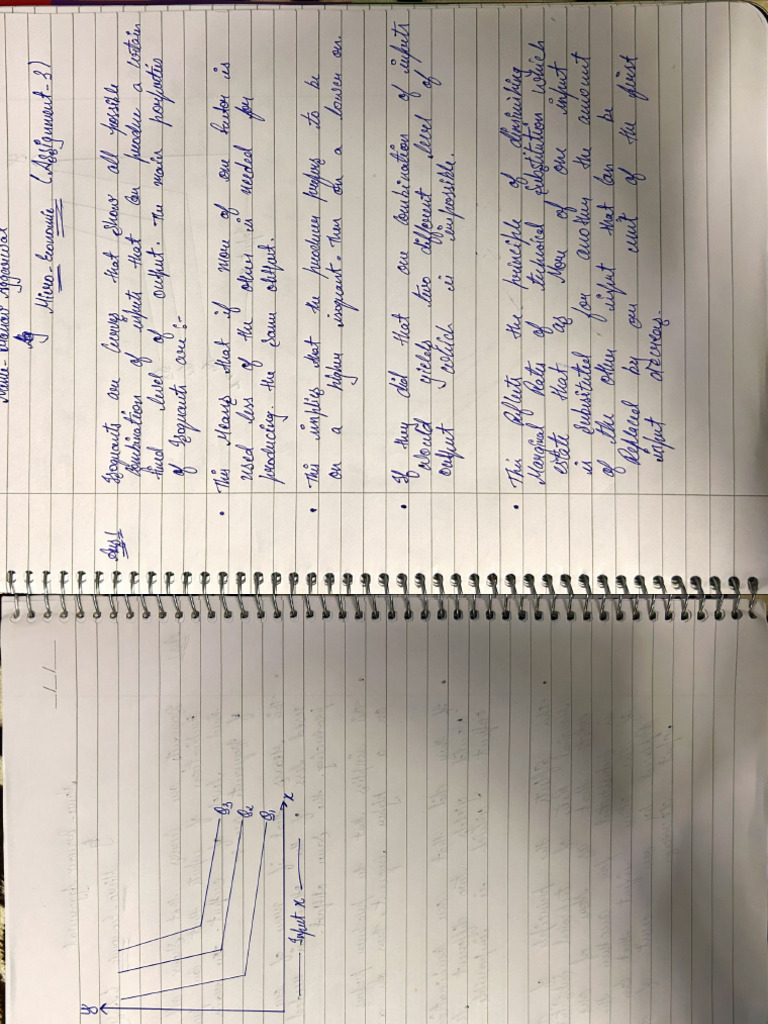 Micro-Economic (Assignment-3)
Ans1 Isoquants are curves that show all possible
Combination of inputs that can produce a certain
level of output. The main
of Isoquants are:-
• This Means that if more of one factor is
used less of the other is needed for
producing the same output.
• This implies that the producer prefers to be
on a higher isoquant. Then on a lower on.
• If they did that one combination of inputs
would yields two different level of
output which is impossible.
• This Reflects the principle of diminishing
Marginal Rate of substitution which
state that as More of one input
is substituted for another the amount
of the other input that can be
Replaced by one unit of the first
input
Y
Q3
Q2
Q1
X
Input x